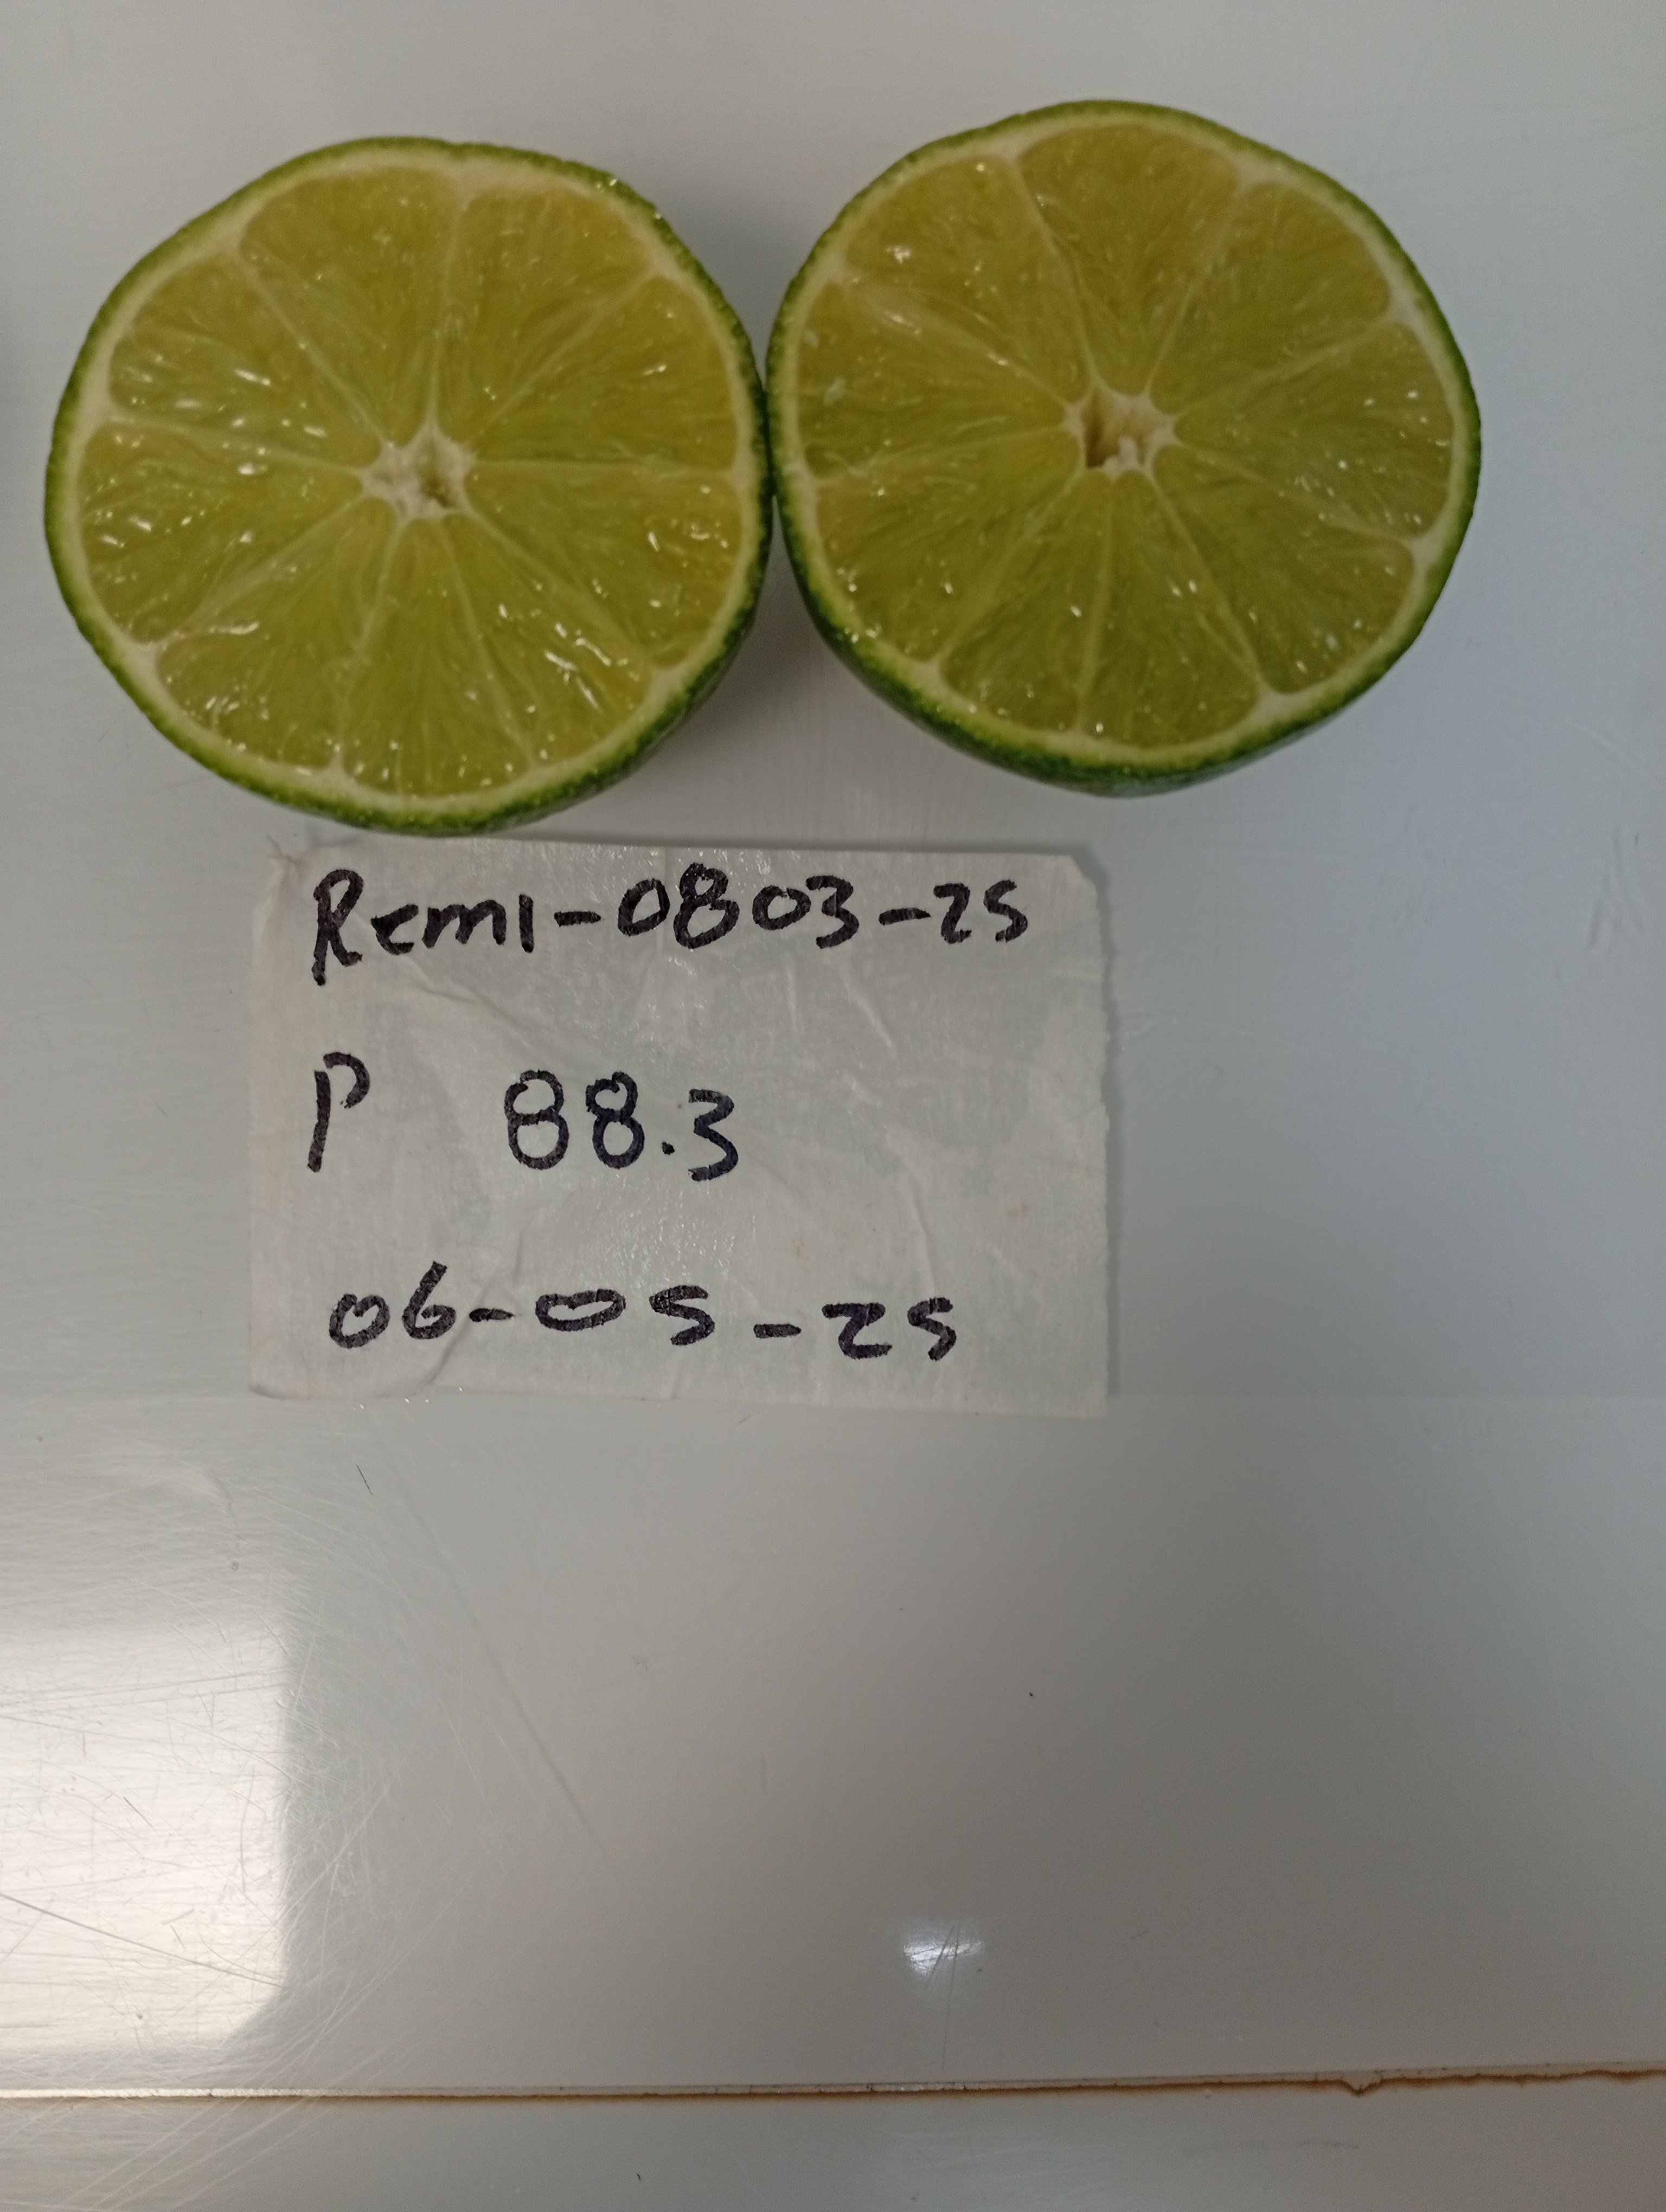 Remi-0803-25
P 88.3
06-05-25